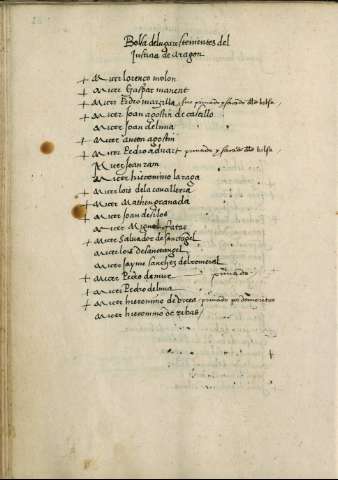 Bolsa de lugarestenientes del
Justicia de Aragon
+ Micer lorenço molon
+ Micer Gaspar manent
+ Micer Pedro marzilla, fue privado y sacado desta bolsa
+ Micer Joan agostin de castillo
Micer Joan de luna
+ Micer anton agostin
+ Micer Pedro aduart privado y sacado desta bolsa
Micer Joan ram
Micer hieronimo laraga
+ Micer lois de la cavalleria
+ Micer Matheu granada
+ Micer Joan de silos
Micer Miguel
+ Micer Salvador de Sanctangel
Micer lois de Sanctangel
Micer Jayme Sanchez del romeral
+ Micer Pedro de mur privado
+ Micer Pedro de luna
+ Micer hieronimo de privado por
Micer hieronimo de ribas